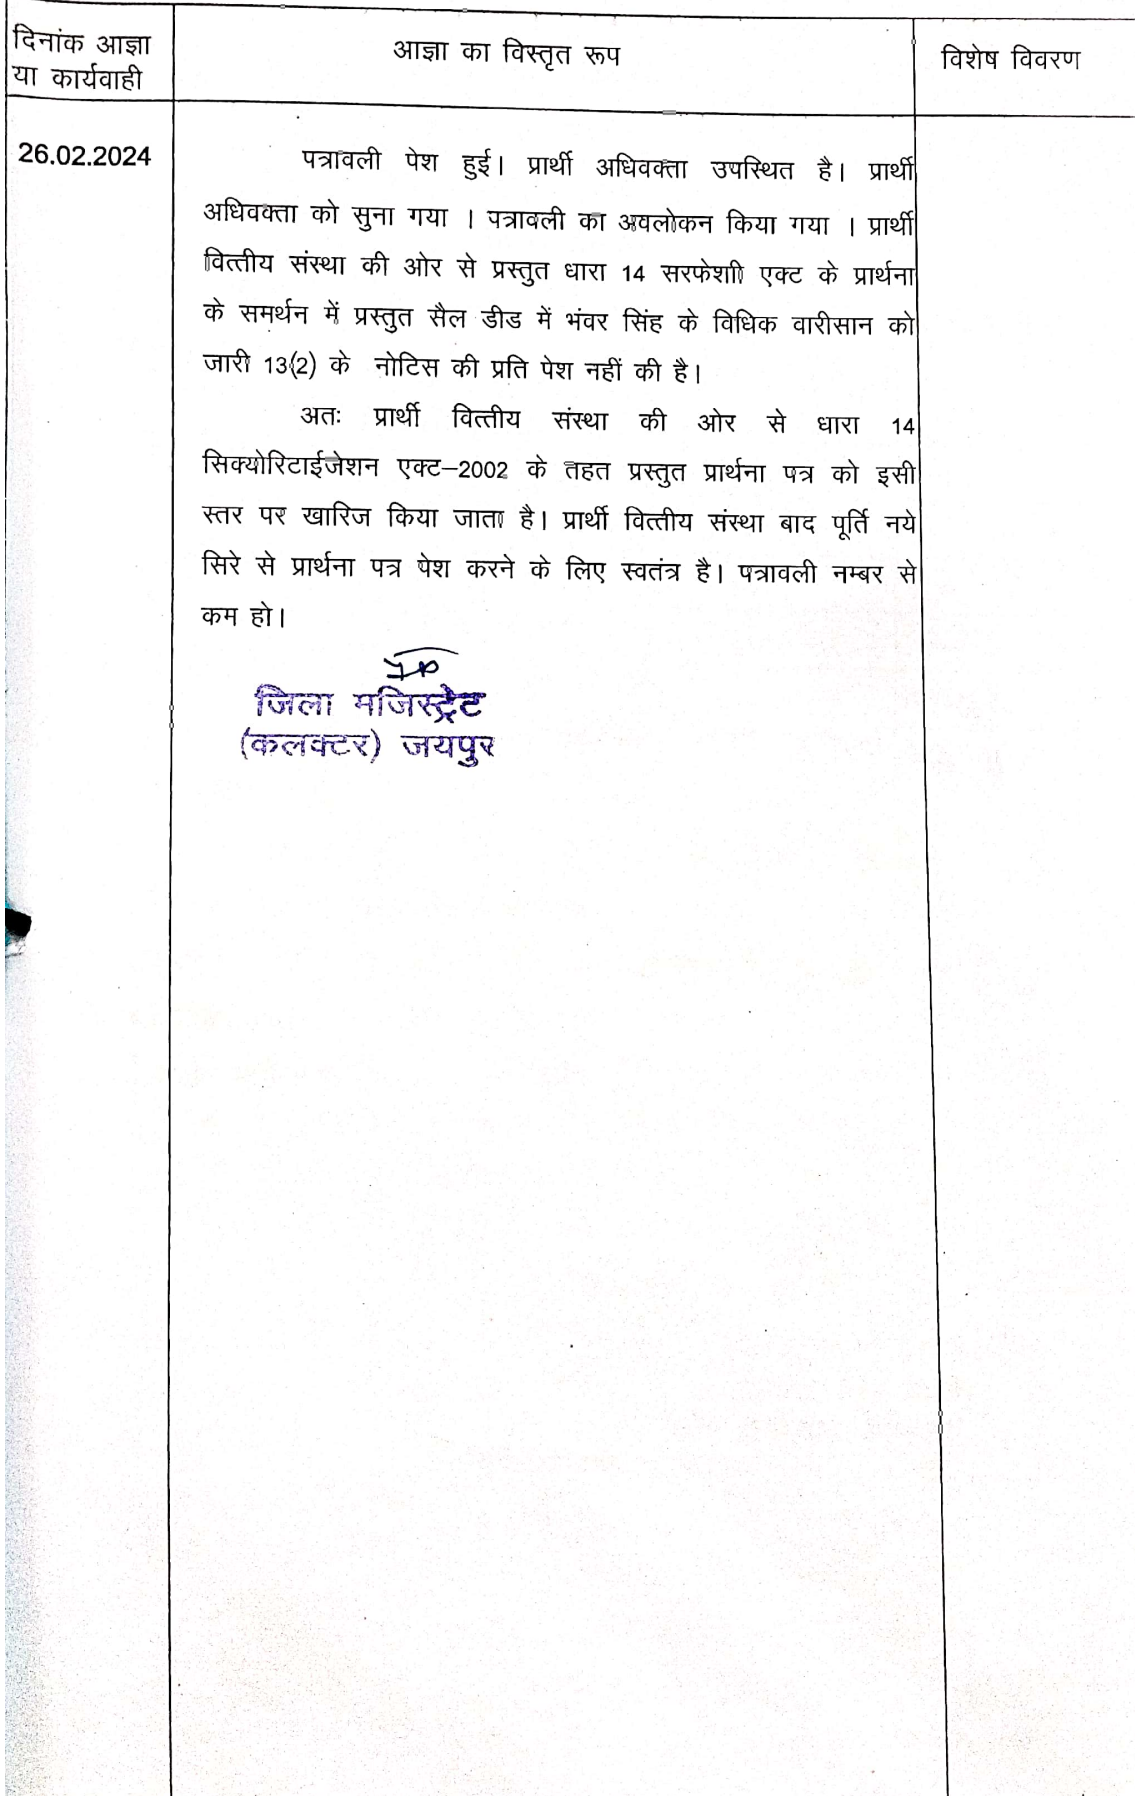 दिनांक आज्ञा
या कार्यवाही
आज्ञा का विस्तृत रूप
विशेष विवरण
26.02.2024
पत्रावली पेश हुई। प्रार्थी अधिवक्ता उपस्थित है। प्रार्थी
अधिवक्ता को सुना गया । पत्रावली का अवलोकन किया गया । प्रार्थी
वित्तीय संस्था की ओर से प्रस्तुत धारा 14 सरफेशी एक्ट के प्रार्थना
के समर्थन में प्रस्तुत सैल डीड में भंवर सिंह के विधिक वारीसान को
जारी 13(2) के नोटिस की प्रति पेश नहीं की है।
अतः प्रार्थी वित्तीय संस्था की ओर से धारा 14
सिक्योरिटाईजेशन एक्ट–2002 के तहत प्रस्तुत प्रार्थना पत्र को इसी
स्तर पर खारिज किया जाता है। प्रार्थी वित्तीय संस्था बाद पूर्ति नये
सिरे से प्रार्थना पत्र पेश करने के लिए स्वतंत्र है। पत्रावली नम्बर से
कम हो।
जिला मजिस्ट्रेट
(कलक्टर) जयपुर